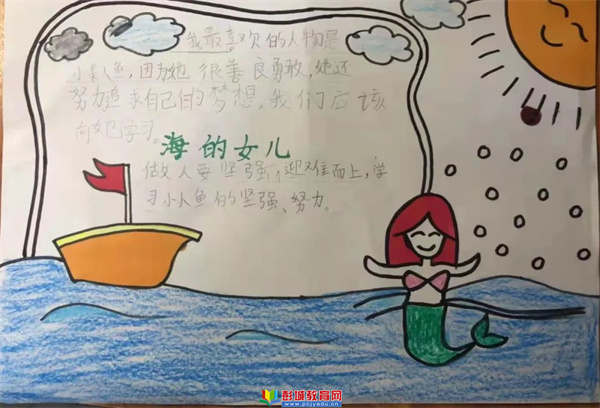 我最喜欢的人物是
小美人鱼，因为她很善良勇敢，她还
努力追求自己的梦想，我们应该
向她学习。
海的女儿
做人要坚强，迎难而上，学
习小人鱼的坚强、努力。
彭城教育网
www.pcjyedu.cn